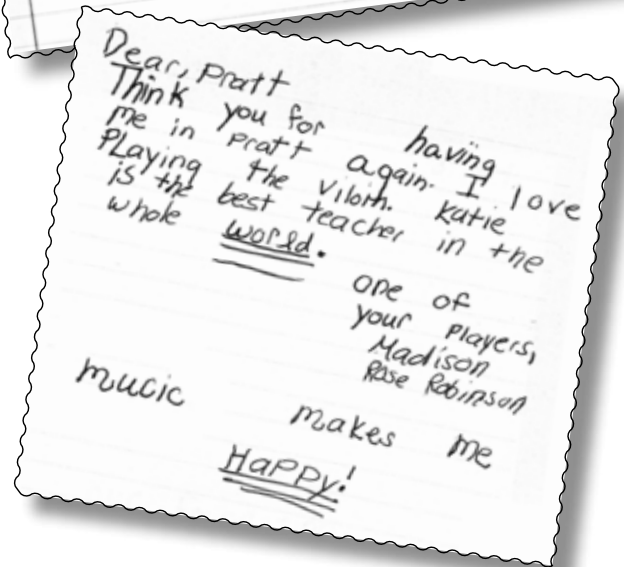 Dear, Pratt
Think you for having
me in Pratt again. I love
PLaying the viloin. Katie
is the best teacher in the
whole world.
one of
your Players,
Madison
Rose Robinson
mucic makes me
HaPPy!